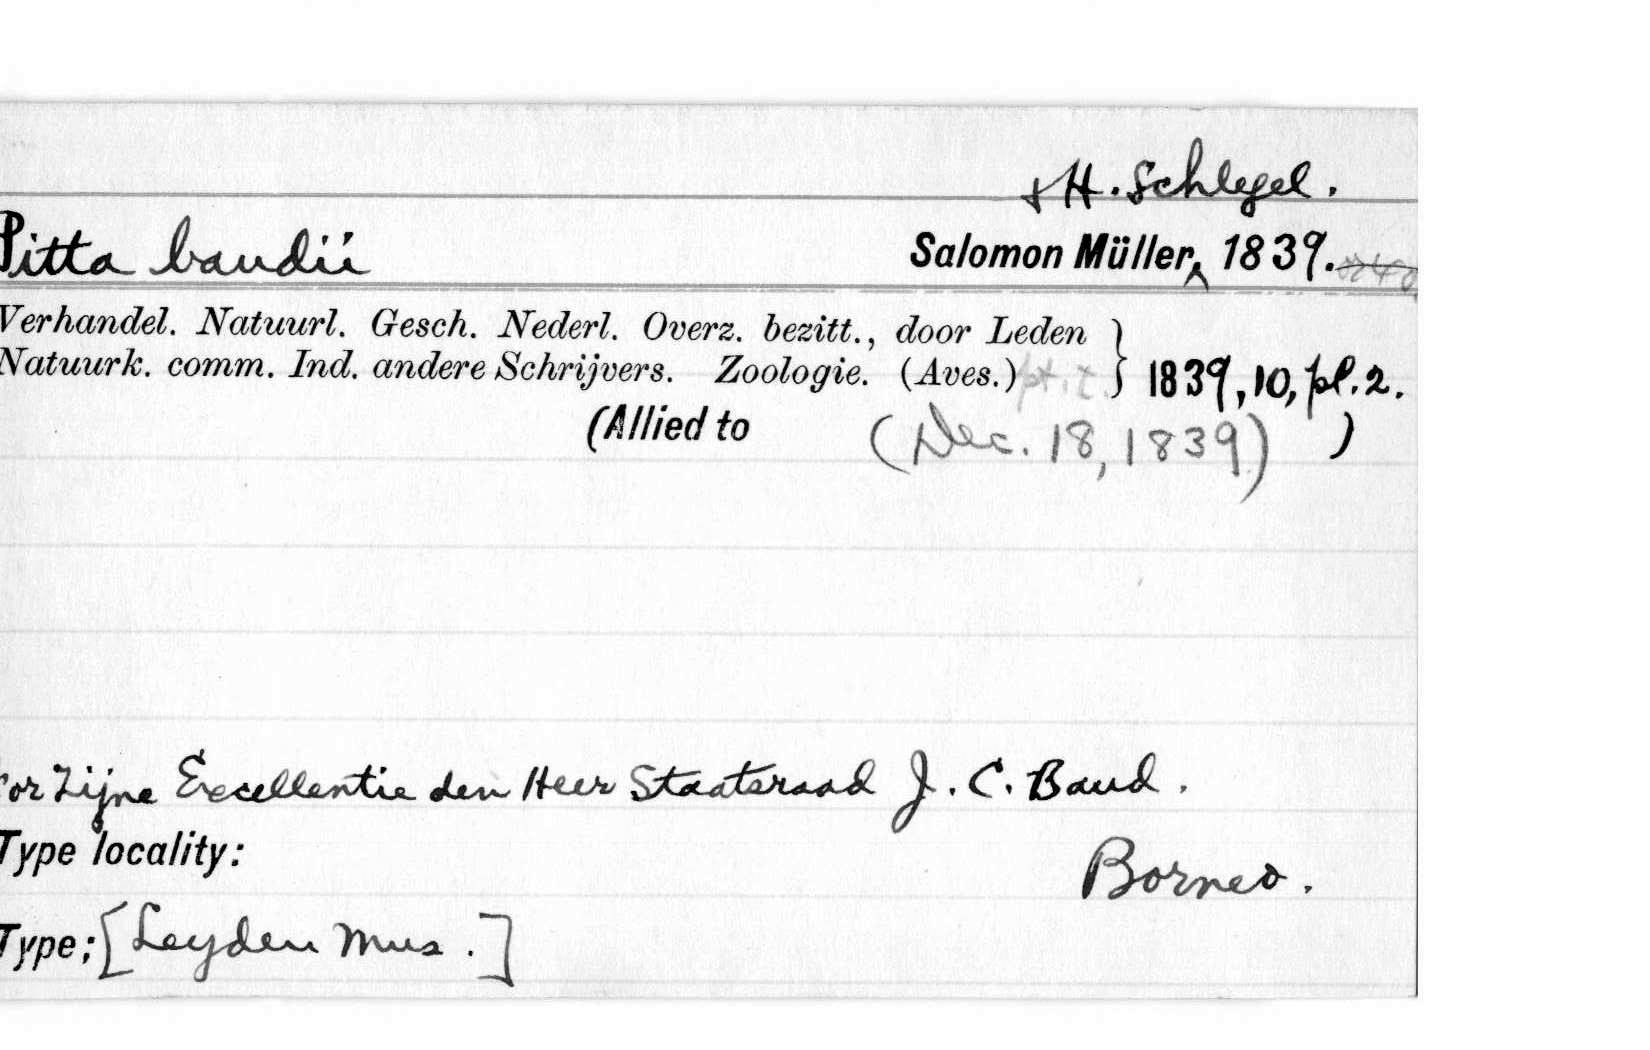 + H. Schlegel.
Pitta baudii Salomon Müller, 1839.
Verhandel. Natuurl. Gesch. Nederl. Overz. bezitt., door Leden
Natuurk. comm. Ind. andere Schrijvers. Zoologie. (Aves.) } 1839, 10, pl. 2.
(Allied to (Dec. 18, 1839) )
for Zijne Excellentie den Heer Staatsraad J. C. Baud.
Type locality: Borneo.
Type; [Leyden Mus.]